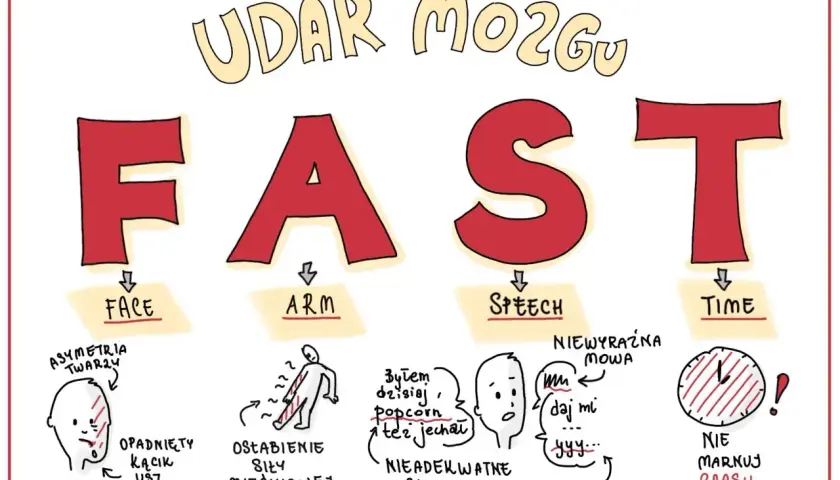 UDAR MOZGU
FAST
FACE
ARM
SPEECH
TIME
ASYMETRIA
TWARZY
OPADNIĘTY
KĄCIK
UST
OSŁABIENIE
SIŁY
Byłem
dzisiaj,
popcorn
też jechał
NIEADEKWATNE
NIEWYRAŹNA
MOWA
daj mi
...
yyy...
NIE
MARNUJ
!